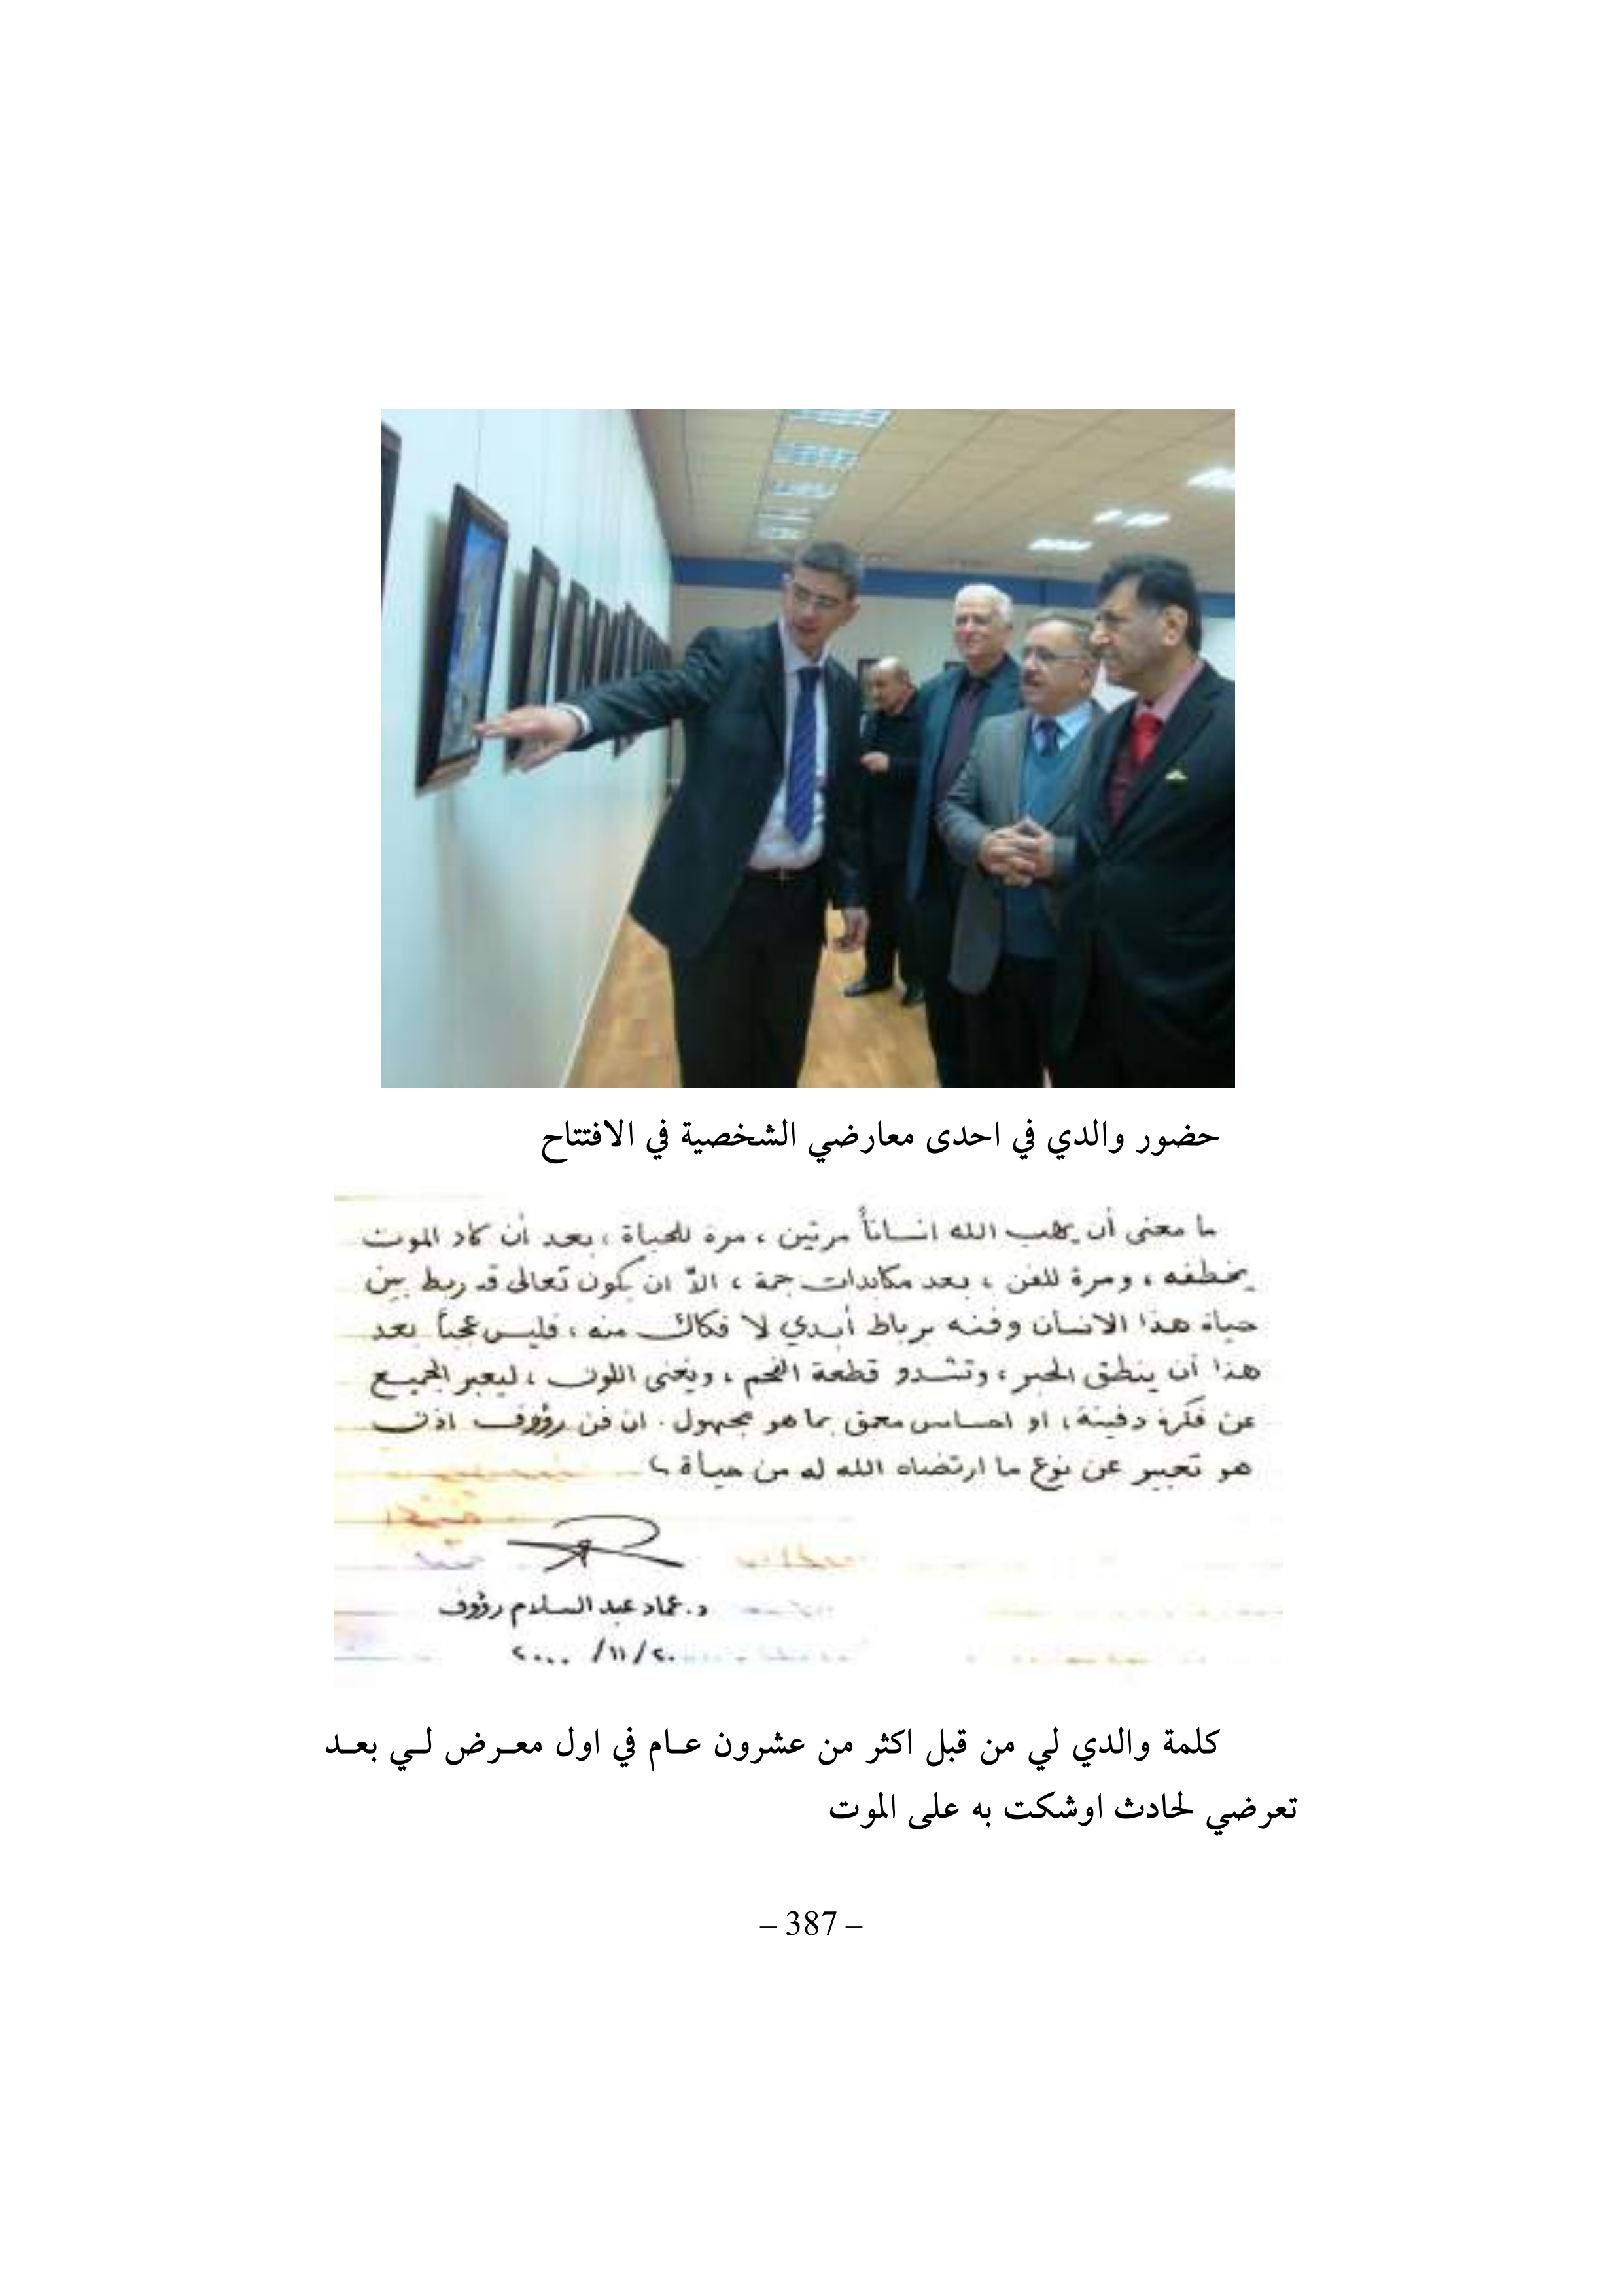 حضور والدي في احدى معارضي الشخصية في الافتتاح
ما معنى أن يهب الله انساناً مرتين ، مرة للحياة ، بعد أن كاد الموت
يخطفه ، ومرة للفن ، بعد مكابدات جمة ، الاّ ان يكون تعالى قد ربط بين
حياة هذا الانسان وفنه برباط أبدي لا فكاك منه ، فليس عجباً بعد
هذا أن ينطق الحبر ، وتشدو قطعة الفحم ، ويغني اللون ، ليعبر الجميع
عن فكرة دفينة ، او احساس معمق بما هو مجهول . ان فن رؤوف اذن
هو تعبير عن نوع ما ارتضاه الله له من حياة
د. عماد عبد السلام رؤوف
٢٠/١١/ ٢٠٠٠
كلمة والدي لي من قبل اكثر من عشرون عـام في اول معـرض لـي بعـد
تعرضي لحادث اوشكت به على الموت
– 387 –